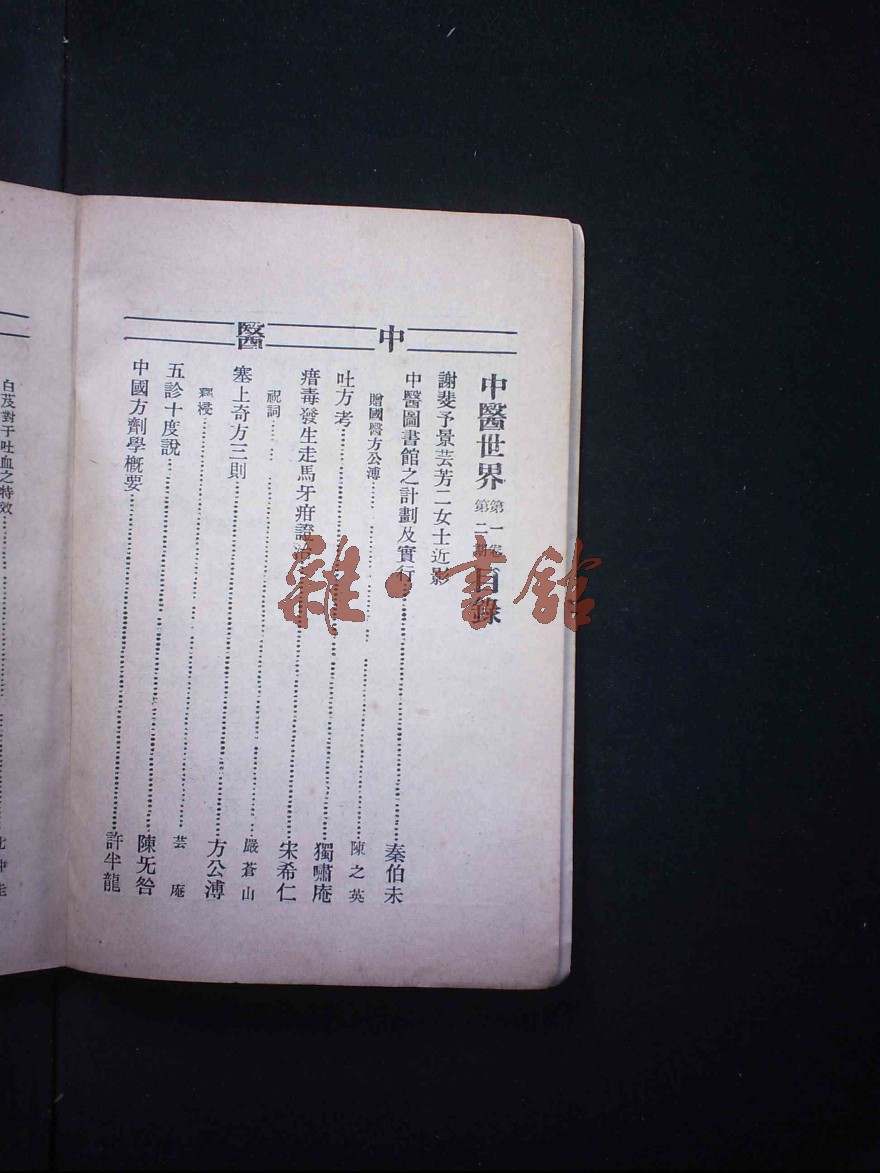 中醫
中醫世界 第一卷 第二期 目錄
謝斐予景芸芳二女士近影
中醫圖書館之計劃及實行……秦伯未
贈國醫方公溥……陳之英
吐方考……獨嘯庵
瘄毒發生走馬牙疳證治……宋希仁
祝詞……嚴蒼山
塞上奇方三則……方公溥
釋祲……芸庵
五診十度說……陳旡咎
中國方劑學概要……許半龍
白芨對于吐血之特效……沈仲圭
雜·書館